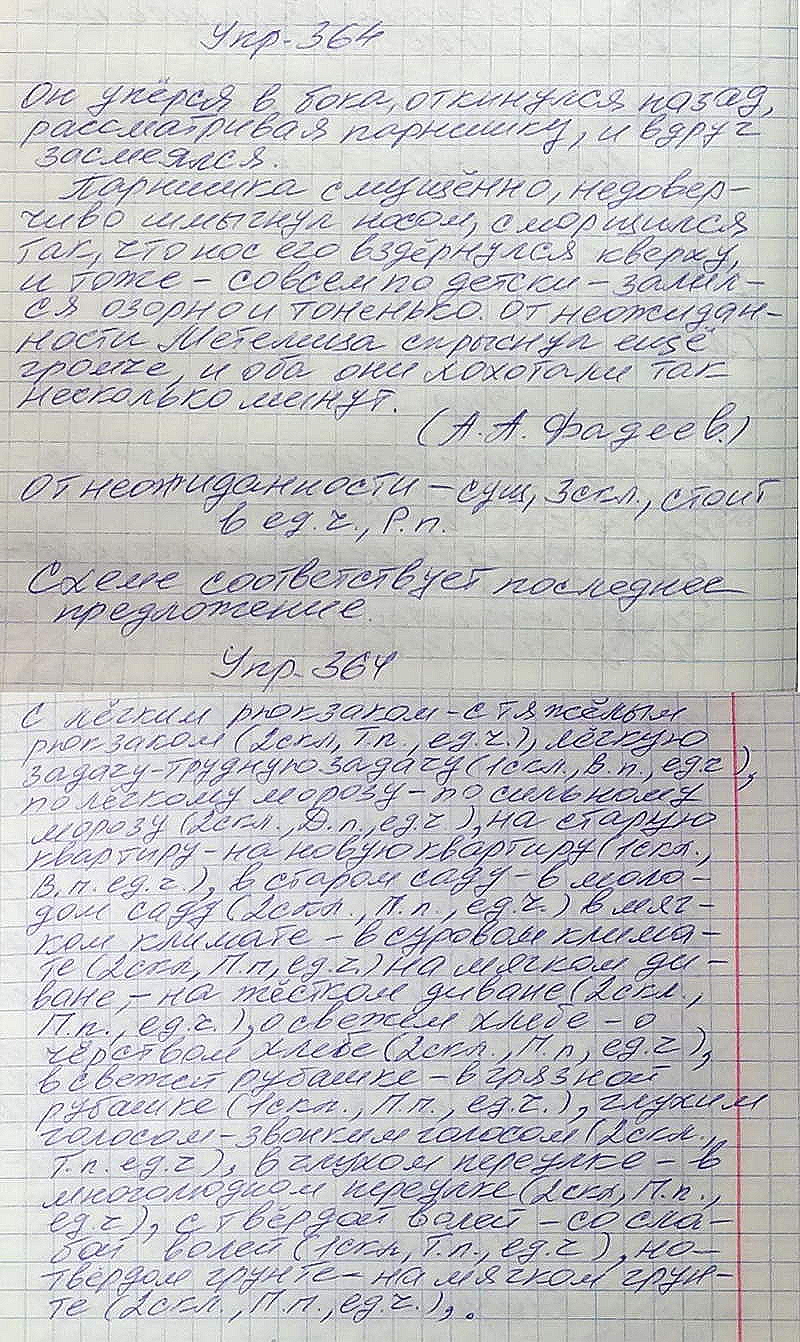 Упр. 364
Он упёрся в бока, откинулся назад,
рассматривая парнишку, и вдруг
засмеялся.
Парнишка смущённо, недовер-
чиво шмыгнул носом, сморщился
так, что нос его вздёрнулся кверху,
и тоже – совсем по детски – залил-
ся озорно и тоненько. От неожидан-
ности Метелица спрыснул ещё
громче, и оба они хохотали так
несколько минут.
(А. А. Фадеев.)
От неожиданности – сущ, 3скл., стоит
в ед.ч., Р.п.
Схеме соответствует последнее
предложение.
Упр. 364
С лёгким рюкзаком – с тяжёлым
рюкзаком (2скл, Т.п., ед.ч.), лёгкую
задачу – трудную задачу (1скл., В.п., ед.ч),
по лёгкому морозу – по сильному
морозу (2скл., Д.п., ед.ч), на старую
квартиру – на новую квартиру (1скл.,
В.п. ед.ч.), в старом саду – в моло-
дом саду (2скл., П.п., ед.ч.) в мяг-
ком климате – в суровом клима-
те (2скл, П.п, ед.ч.) на мягком ди-
ване, – на жёстком диване (2скл.,
П.п., ед.ч.), о свежем хлебе – о
чёрством хлебе (2скл., П.п, ед.ч),
в свежей рубашке – в грязной
рубашке (1скл., П.п., ед.ч.), глухим
голосом – звонким голосом (2скл.,
Т.п. ед.ч), в глухом переулке – в
многолюдном переулке (2скл, П.п.,
ед.ч), с твёрдой волей – со сла-
бой волей (1скл, Т.п., ед.ч), на
твёрдом грунте – на мягком грун-
те (2скл., П.п., ед.ч.),.